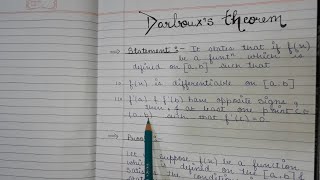 Darboux's theorem
→ Statement :- It states that if f(x)
be a funcⁿ which is
defined on [a,b] such that
i) f(x) is differentiable on [a,b]
ii) f'(a) & f'(b) have opposite signs
then, ∃ at least one point c∈
(a,b) such that f'(c)=0
→ Proof :-
Let suppose f(x) be a function
is defined on the [a,b] &
the condition